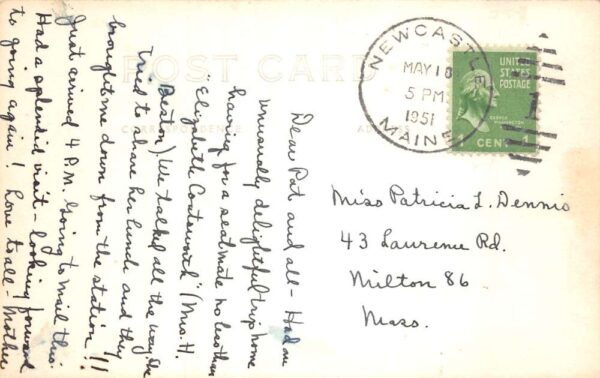 POST CARD
CORRESPONDENCE
ADDRESS
Dear Pat and all - Had an
unusually delightful trip home
having for a seatmate no less than
"Elizabeth Coatsworth" (Mrs. H.
Beston) We talked all the way.
tried to share her lunch and they
brought me down from the station!!
Just arrived 4 P.M. Going to mail this.
Had a splendid visit - looking forward
to going again! Love to all - Mother
NEWCASTLE
MAY
5 PM
1951
MAINE
UNITED
STATES
POSTAGE
GEORGE
WASHINGTON
1 CENT
Miss Patricia L. Dennis
43 Laurence Rd.
Milton 86
Mass.